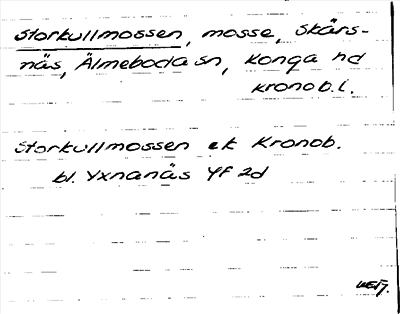 Storkullmossen, mosse, Skärs-
näs, Älmeboda sn, Konga hd
Kronob. l.
Storkullmossen ek Kronob.
bl. Yxnanäs 4F 2d